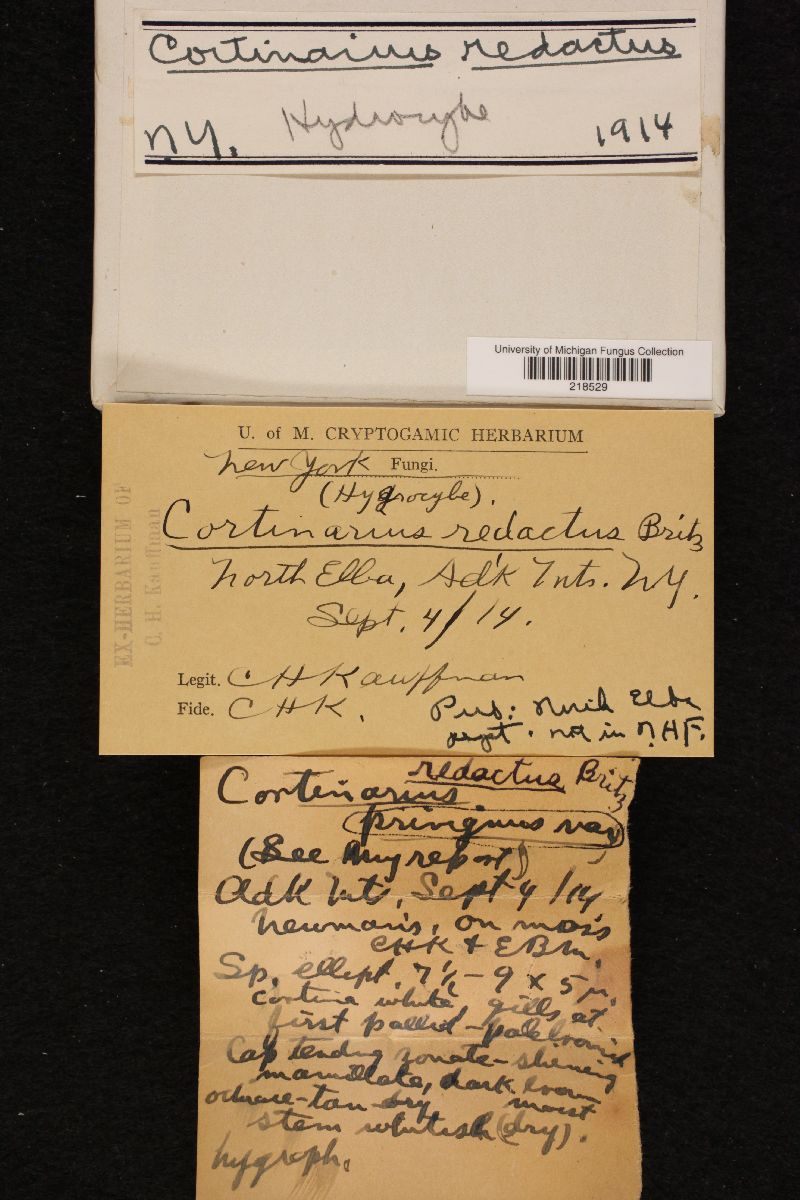 Cortinarius redactus
N.Y. Hydrocybe 1914
University of Michigan Fungus Collection
218529
U. of M. CRYPTOGAMIC HERBARIUM
New York Fungi.
(Hydrocybe).
Cortinarius redactus Britz
North Elba, Adk Mts. NY.
Sept. 4/14.
EX-HERBARIUM OF
C. H. Kauffman
Legit. CHKauffman
Fide. CHK.
Pub: North Elba
report. not in N.A.F.
redactus Britz
Cortinarius
privignus var
(See my report)
Adk Mts, Sept 4/14
Newman's, on moss
CHK + EBM.
Sp. ellept. 7½-9 x 5 µ.
cortina white, gills at
first pallid-pale brownish
Cap tending zonate-shining
mamillate, dark brown
moist
ochrace-tan dry
stem whitish (dry).
hygroph.